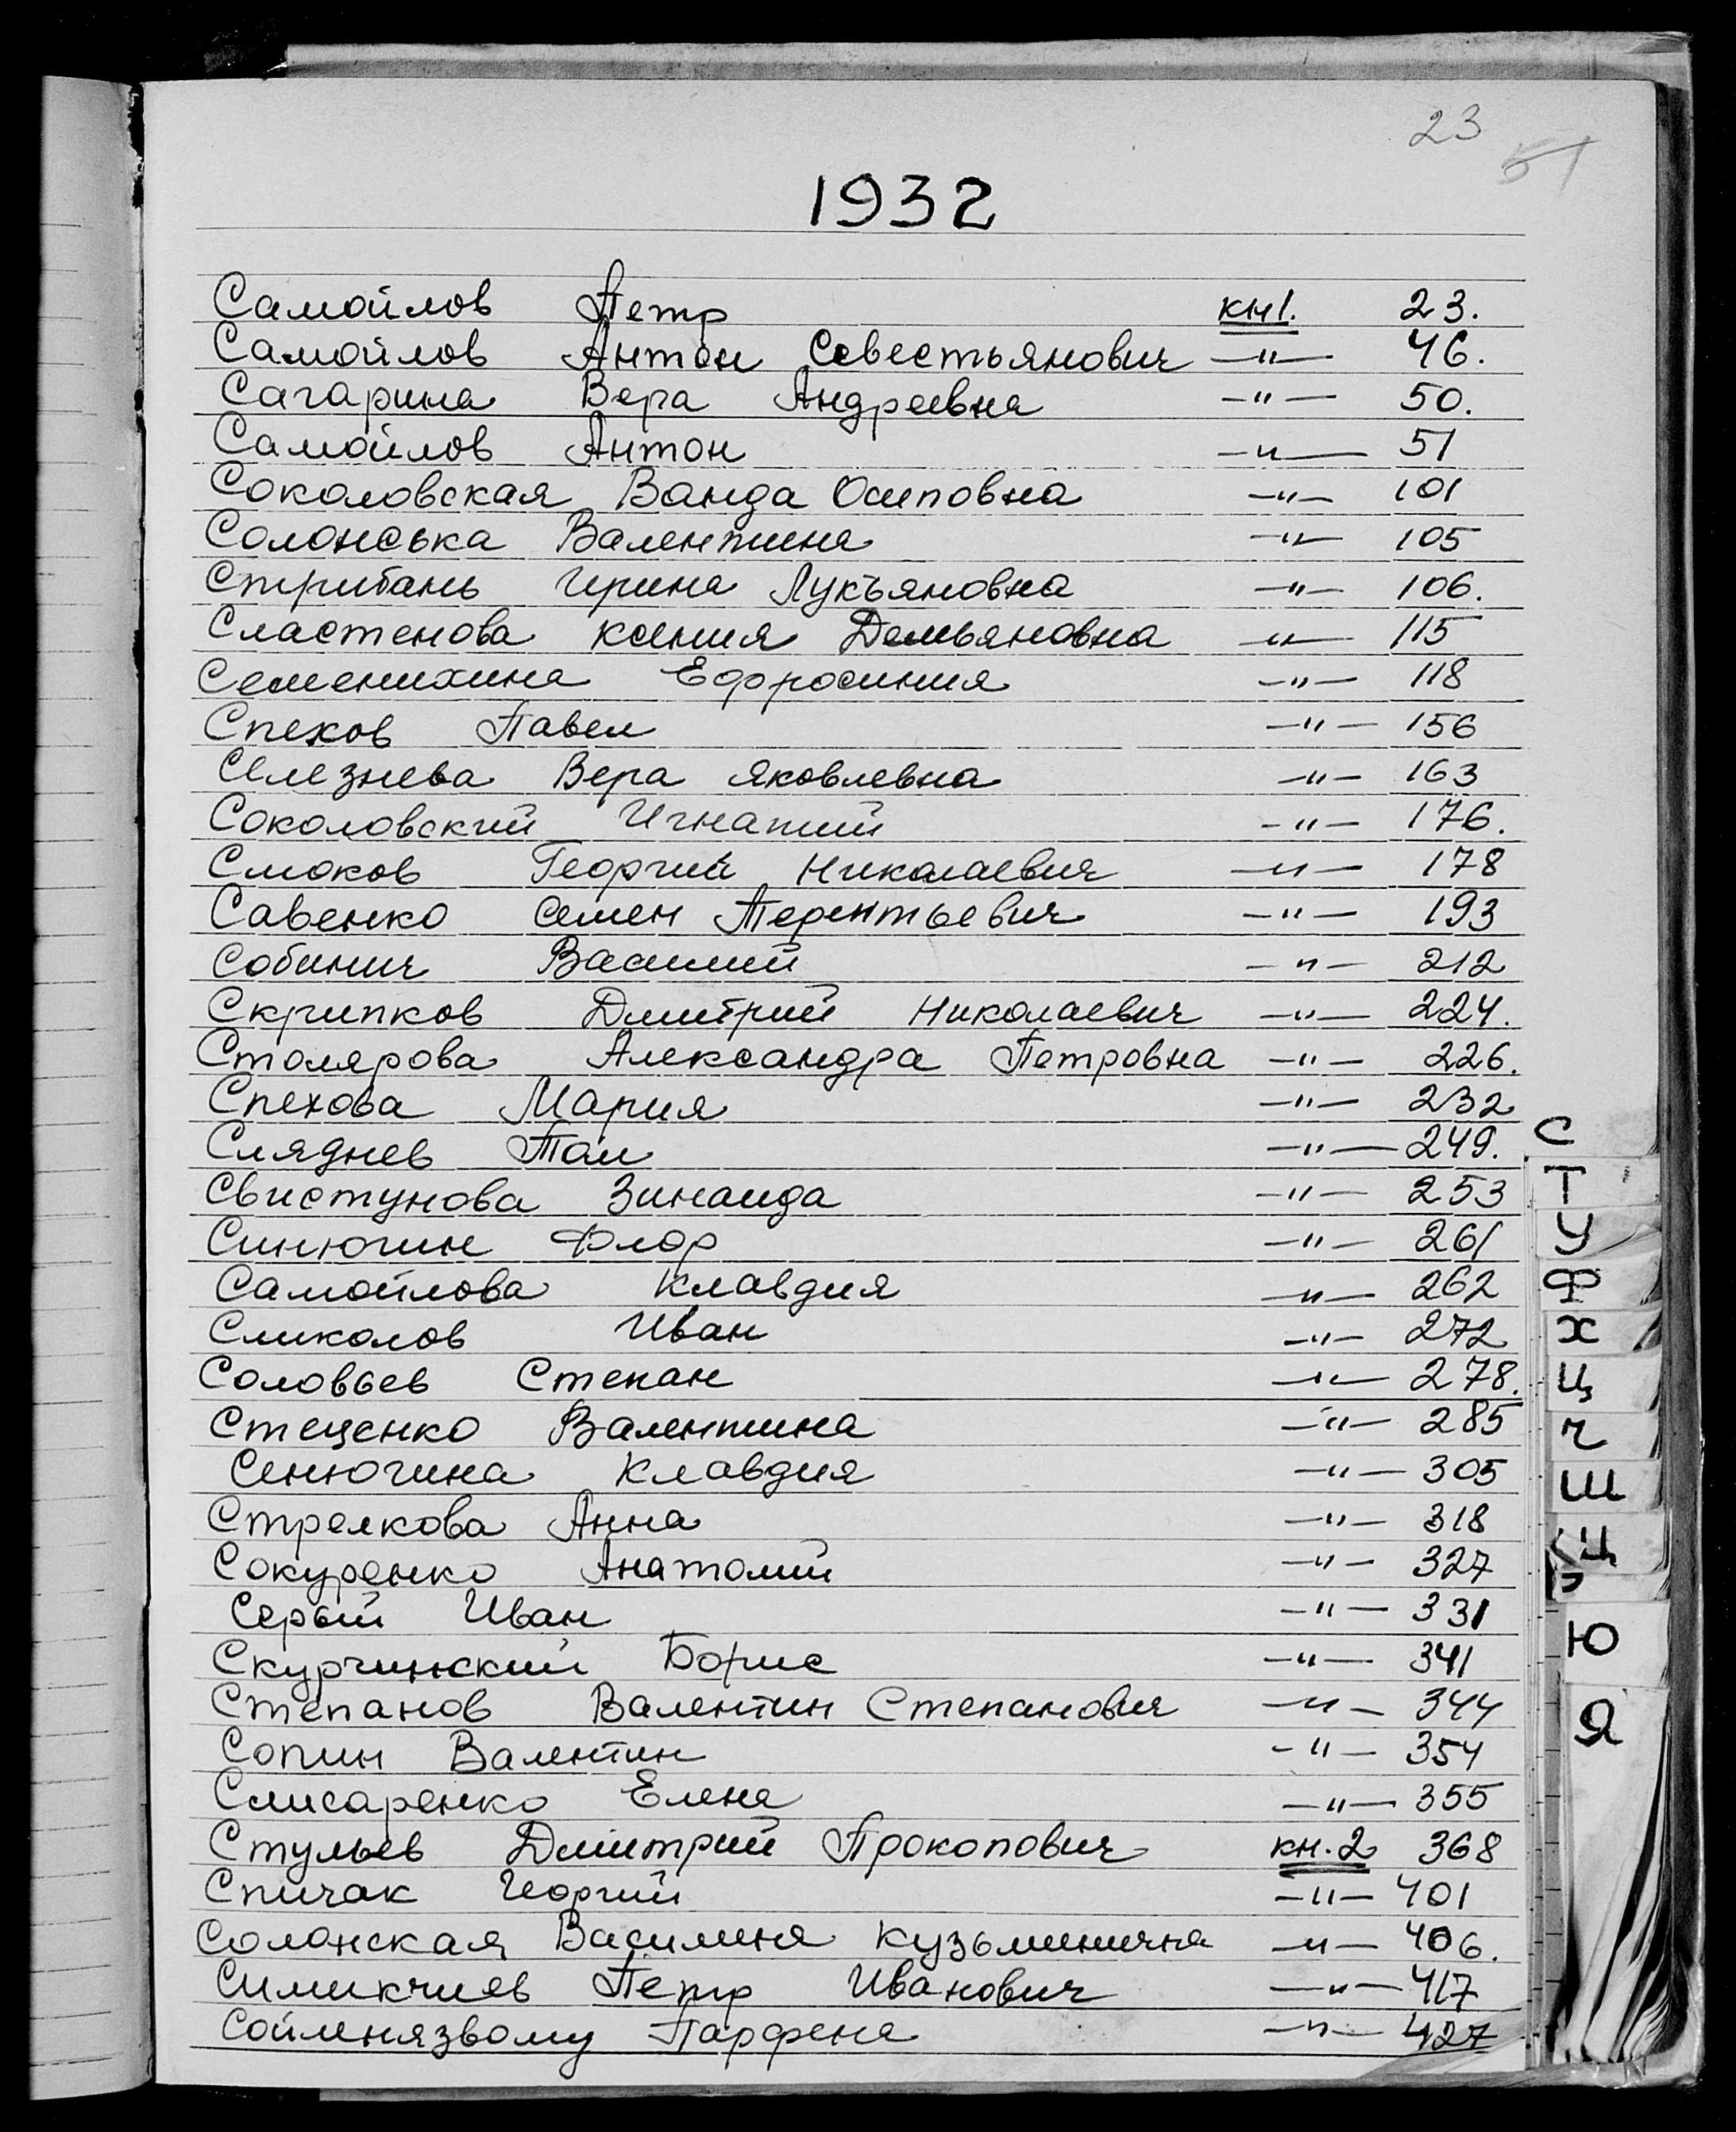 23
51
1932
Самойлов Петр кн1. 23.
Самойлов Антон Севестьянович —"— 46.
Сагарина Вера Андреевна —"— 50.
Самойлов Антон —"— 51
Соколовская Ванда Осиповна —"— 101
Солонська Валентина —"— 105
Стрибань Ирина Лукъяновна —"— 106.
Сластенова Ксения Демьяновна —"— 115
Семенихина Ефросиния —"— 118
Спехов Павел —"— 156
Селезнева Вера Яковлевна —"— 163
Соколовский Игнатий —"— 176.
Смоков Георгий Николаевич —"— 178
Савенко Семен Терентьевич —"— 193
Собинич Василий —"— 212
Скрипков Дмитрий Николаевич —"— 224.
Столярова Александра Петровна —"— 226.
Спехова Мария —"— 232
Сляднев —"— 249.
Свистунова Зинаида —"— 253
Синюгин Флор —"— 261
Самойлова Клавдия —"— 262
Смиколов Иван —"— 272
Соловьев Степан —"— 278.
Стеценко Валентина —"— 285
Сенюгина Клавдия —"— 305
Стрелкова Анна —"— 318
Сокуренко Анатолий —"— 327
Серый Иван —"— 331
Скурчинский Борис —"— 341
Степанов Валентин Степанович —"— 344
Сопин Валентин —"— 354
Слисаренко Елена —"— 355
Стульев Дмитрий Прокопович кн.2 368
Спичак Георгий —"— 401
Солонская Василиня Кузьминична —"— 406.
Симикчиев Петр Иванович —"— 417
Сойленязвому Парфена —"— 427
С
Т
У
Ф
Х
Ц
Ч
Ш
Щ
Э
Ю
Я